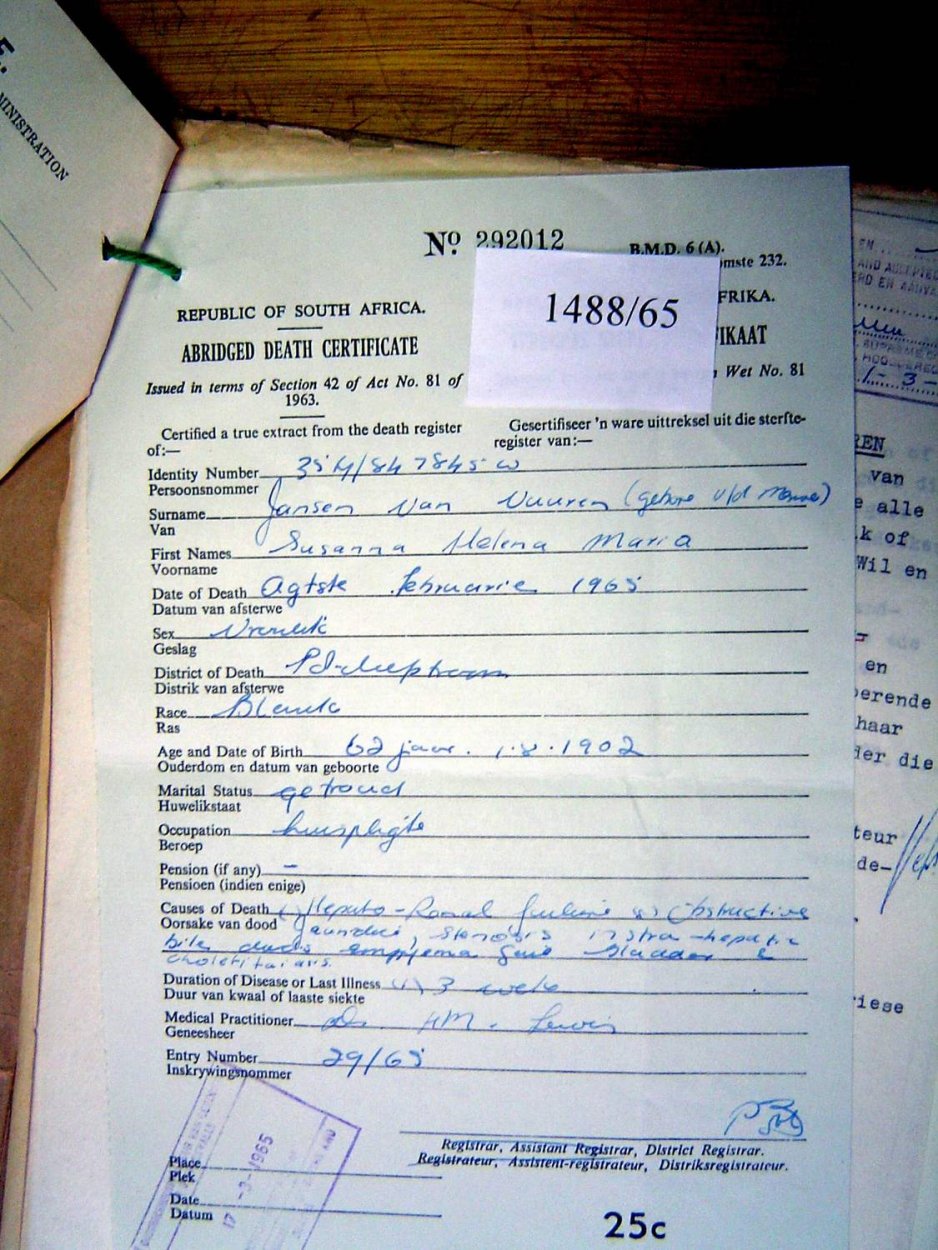 E.
MINISTRATION
No 292012
B.M.D. 6 (A).
omste 232.
1488/65
REPUBLIC OF SOUTH AFRICA.
FRIKA.
ABRIDGED DEATH CERTIFICATE
IKAAT
Issued in terms of Section 42 of Act No. 81 of 1963.
Wet No. 81
Certified a true extract from the death register of:—
Gesertifiseer 'n ware uittreksel uit die sterfte-
register van:—
Identity Number 354/847845 W
Persoonsnommer
Surname Jansen Van Vuuren (gebore v/d Merwe)
Van
First Names Susanna Helena Maria
Voorname
Date of Death Agtste Februarie 1965
Datum van afsterwe
Sex Vroulik
Geslag
District of Death
Distrik van afsterwe
Race Blank
Ras
Age and Date of Birth 62 jaar. 1.8.1902
Ouderdom en datum van geboorte
Marital Status getroud
Huwelikstaat
Occupation huispligte
Beroep
Pension (if any) —
Pensioen (indien enige)
Causes of Death Hepato-Renal failure Obstructive
Oorsake van dood jaundice, stenosis intra-hepatic
bile ducts empyema Gall Bladder
Duration of Disease or Last Illness 3 weke
Duur van kwaal of laaste siekte
Medical Practitioner Dr HM. Lewis
Geneesheer
Entry Number 29/65
Inskrywingsnommer
Registrar, Assistant Registrar, District Registrar.
Registrateur, Assistent-registrateur, Distriksregistrateur.
Place
Plek
Date
Datum
1965
25c
EN
AND ACCEPTED
1 - 3 -
REN
van
e alle
k of
Wil en
en
perende
haar
der die
teur
de-
iese